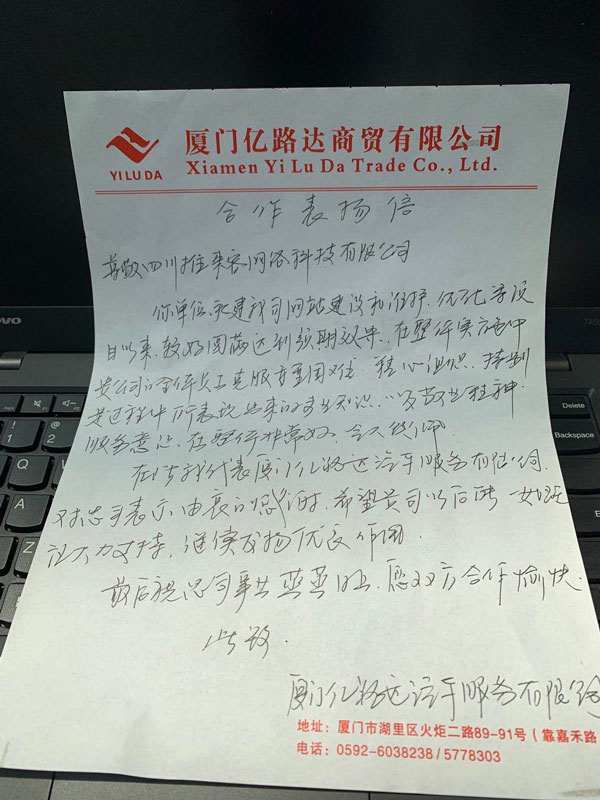 YILUDA
厦门亿路达商贸有限公司
Xiamen Yi Lu Da Trade Co., Ltd.
合作表扬信
尊敬四川推来客网络科技有限公司
你单位承建我司网站建设和维护、优化等项
目以来,较好圆满达到预期效果,在整个实施中
贵公司的全体员工克服重重困难,精心组织,特别
是过程中所表现出来的专业知识,以及敬业精神
服务意识,在整行非常好,令人佩服
在此我代表厦门亿路达汽车服务有限公司
对贵司表示由衷的感谢,希望贵司以后能一如既
往大力支持,继续发扬优良作用
最后祝贵司事业蒸蒸日上,愿双方合作愉快.
此致.
厦门亿路达汽车服务有限公司
地址:厦门市湖里区火炬二路89-91号(靠嘉禾路
电话:0592-6038238/5778303
novo
Delete
Backspace
Q
A
1
2